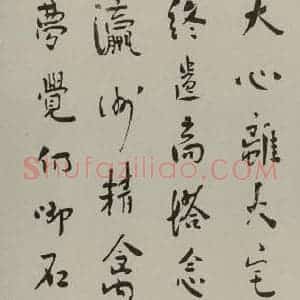 大心離火宅
終遺高塔念
瀛洲精舍
夢覺仍啣石
Shufaziliao.com